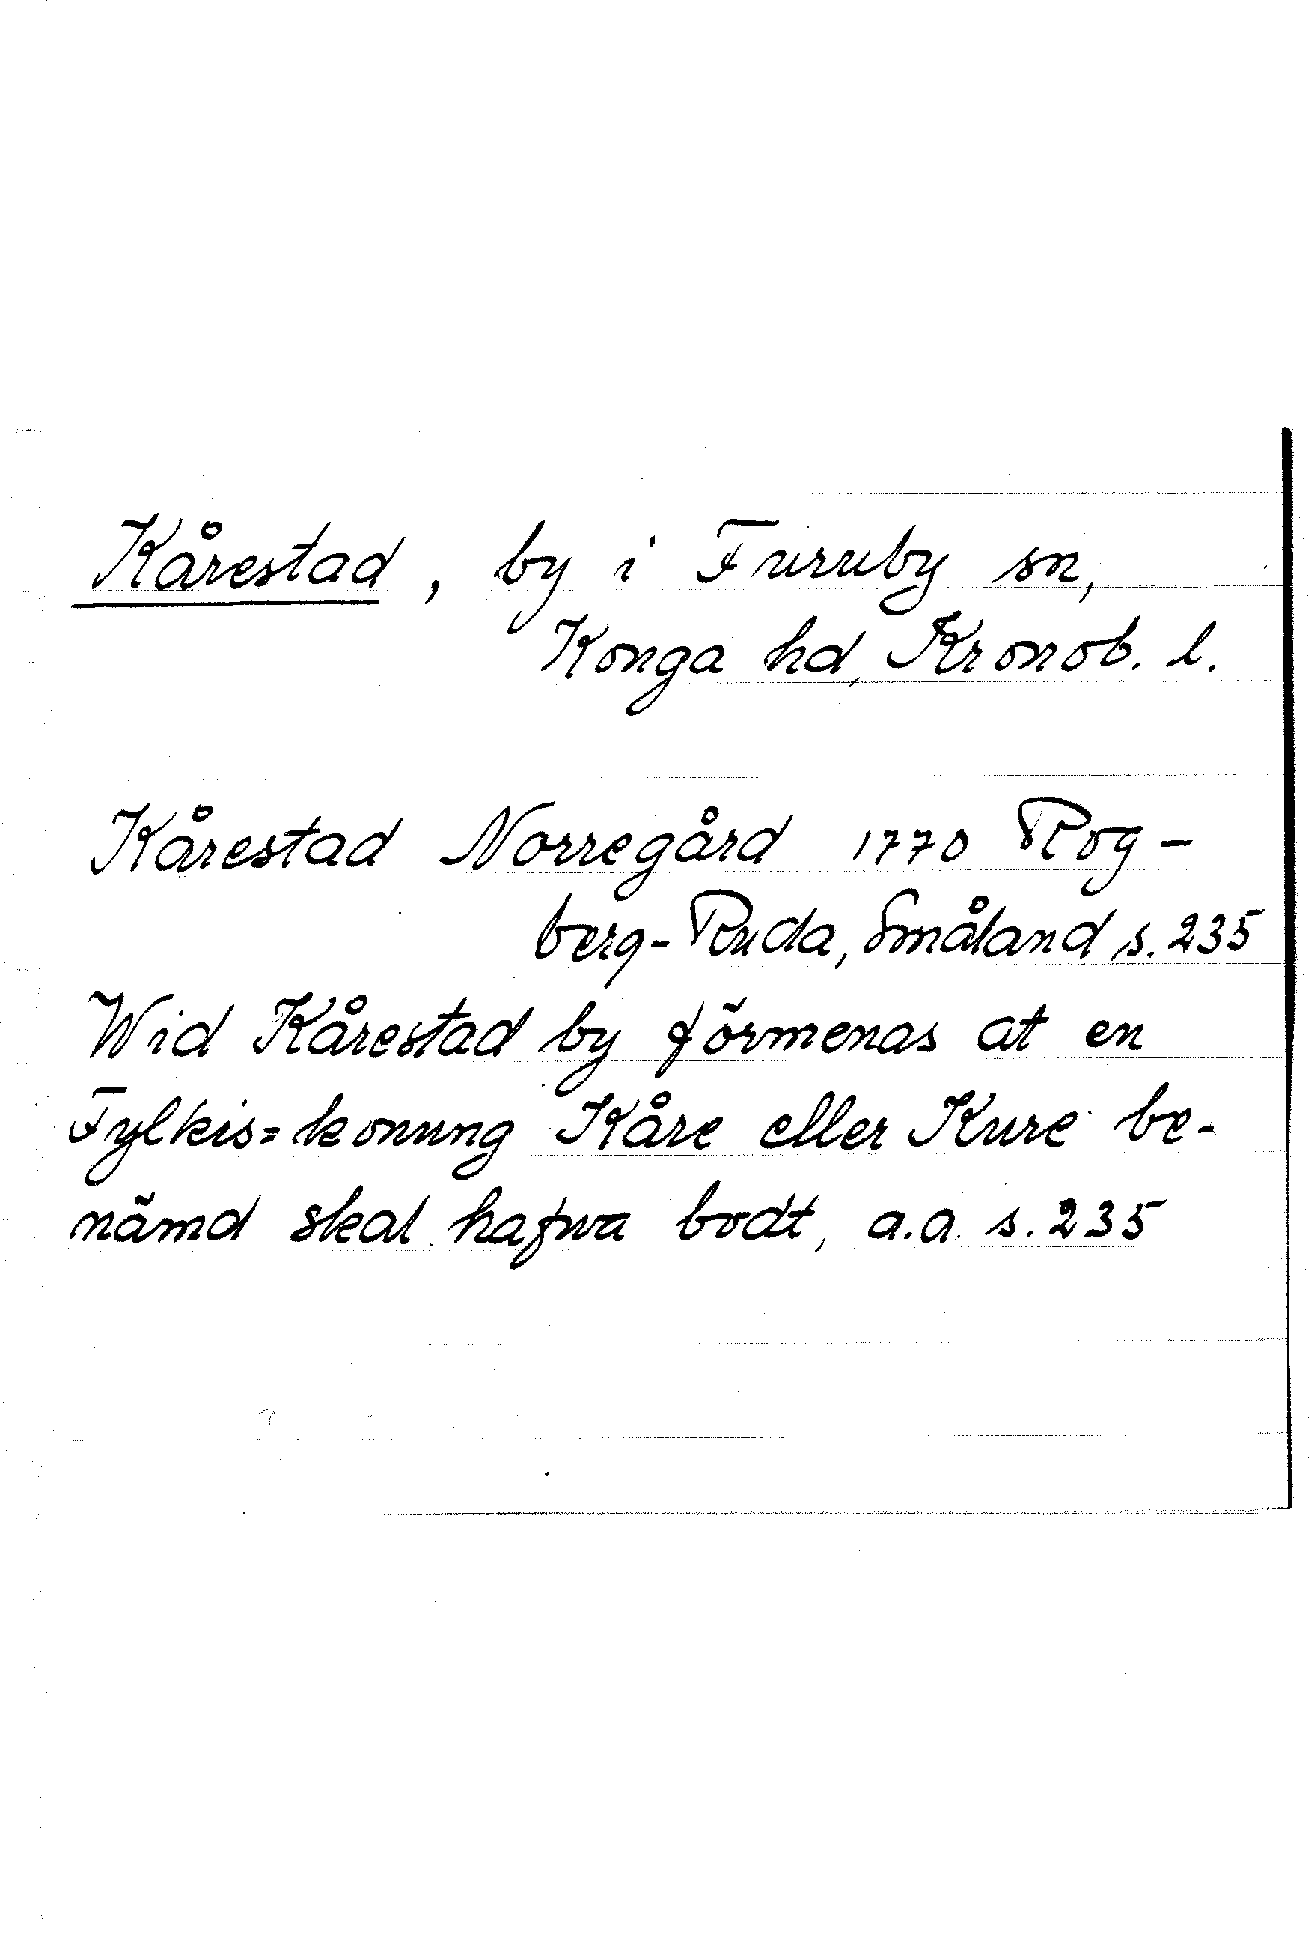 Kårestad, by i Furuby sn,
Konga hd, Kronob. l.
Kårestad Norregård 1770 Rog-
berg-Ruda, Småland s. 235
Wid Kårestad by förmenas at en
Fylkis=konung Kåre eller Kure be-
nämd skal hafwa bodt, a.a. s. 235